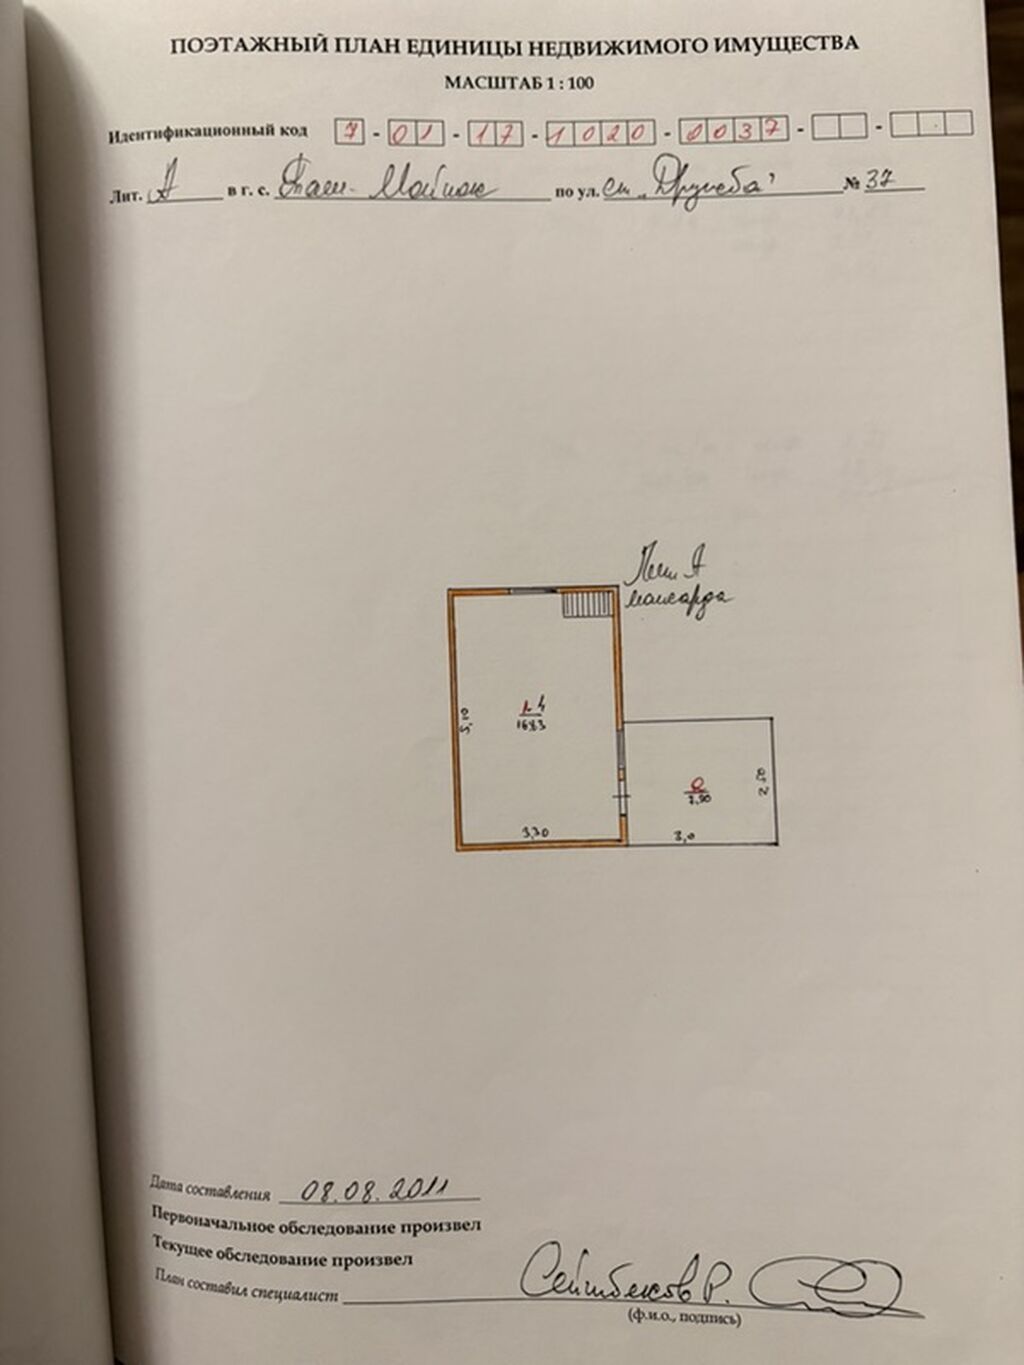 ПОЭТАЖНЫЙ ПЛАН ЕДИНИЦЫ НЕДВИЖИМОГО ИМУЩЕСТВА
МАСШТАБ 1 : 100
Идентификационный код 7 - 01 - 17 - 1020 - 0037 - -
Лит. А в г. с. Таш-Мойнок по ул. ст. „Дружба" № 37
Лит А
мансарда
4
16.83
5,10
3,30
2,50
3,0
Дата составления 08.08.2011
Первоначальное обследование произвел
Текущее обследование произвел
План составил специалист Сейитбеков Р.
(ф.и.о., подпись)